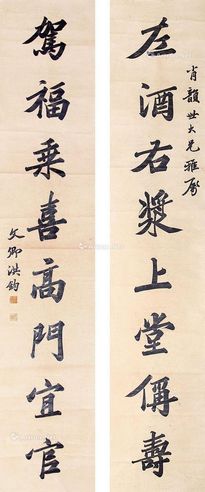 肖韻世大兄雅屬
左酒右漿上堂偁壽
駕福乘喜高門宜官
文卿洪鈞